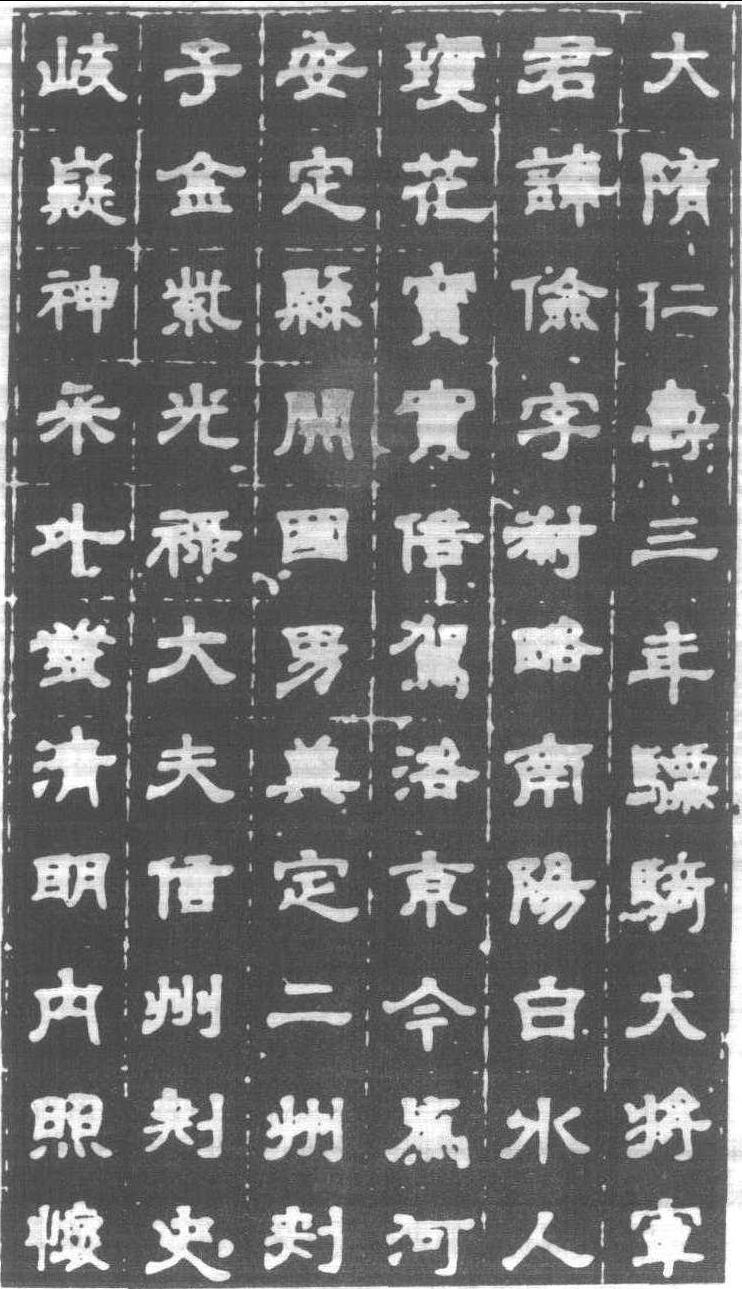 大隋仁壽三年驃騎大將軍
君諱儉字略南陽白水人
瓊花寶實陪駕洛京今爲河
安定縣開國男真定二州刺
子金紫光祿大夫信州刺史
岐嶷神采外發清明內照懷